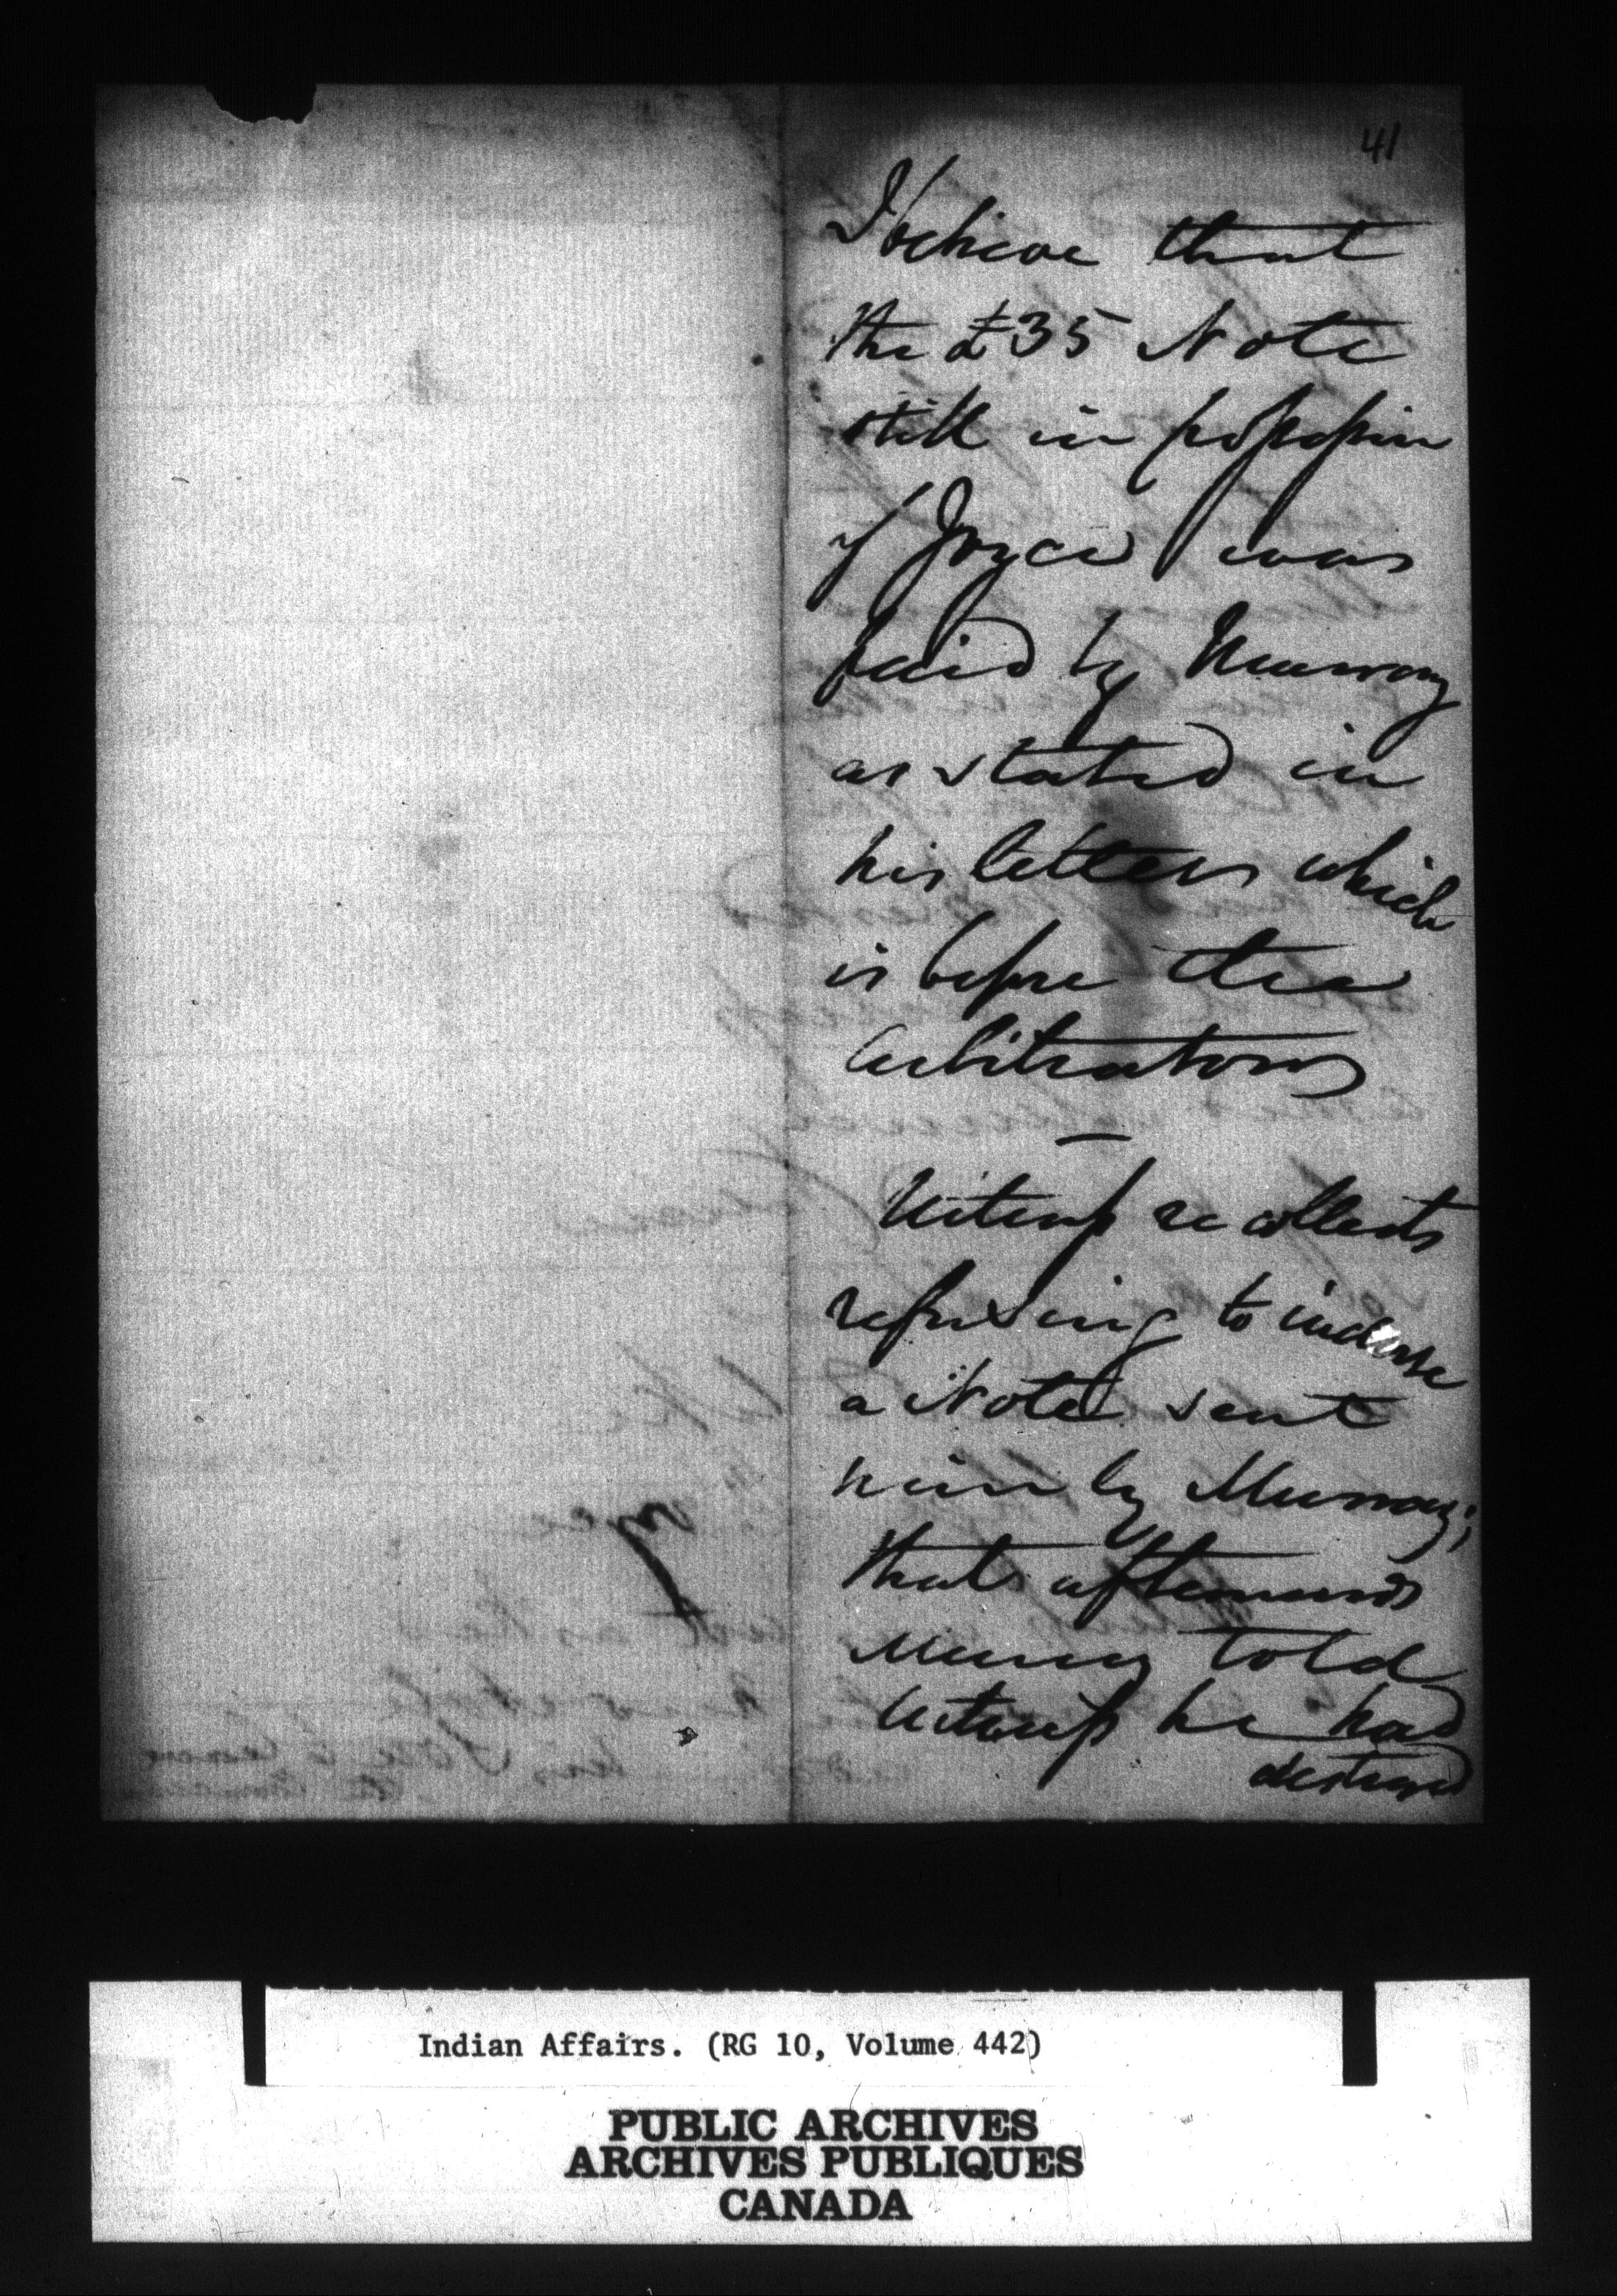 41
I believe that
the £35 Note
still in possession
of Joyce was
paid by Murray
as stated in
his letters which
is before the
Arbitrators
Witness recollects
refusing to indorse
a Note sent
him by Murray;
that afterwards
Murray told
Witness he had
destroyed
Indian Affairs. (RG 10, Volume 442)
PUBLIC ARCHIVES
ARCHIVES PUBLIQUES
CANADA